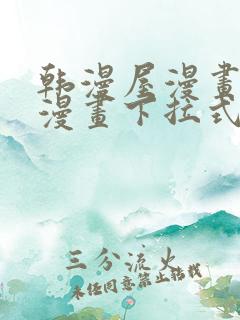 韩漫屋漫畫
漫畫下拉式
三分流火
未经同意禁止转载